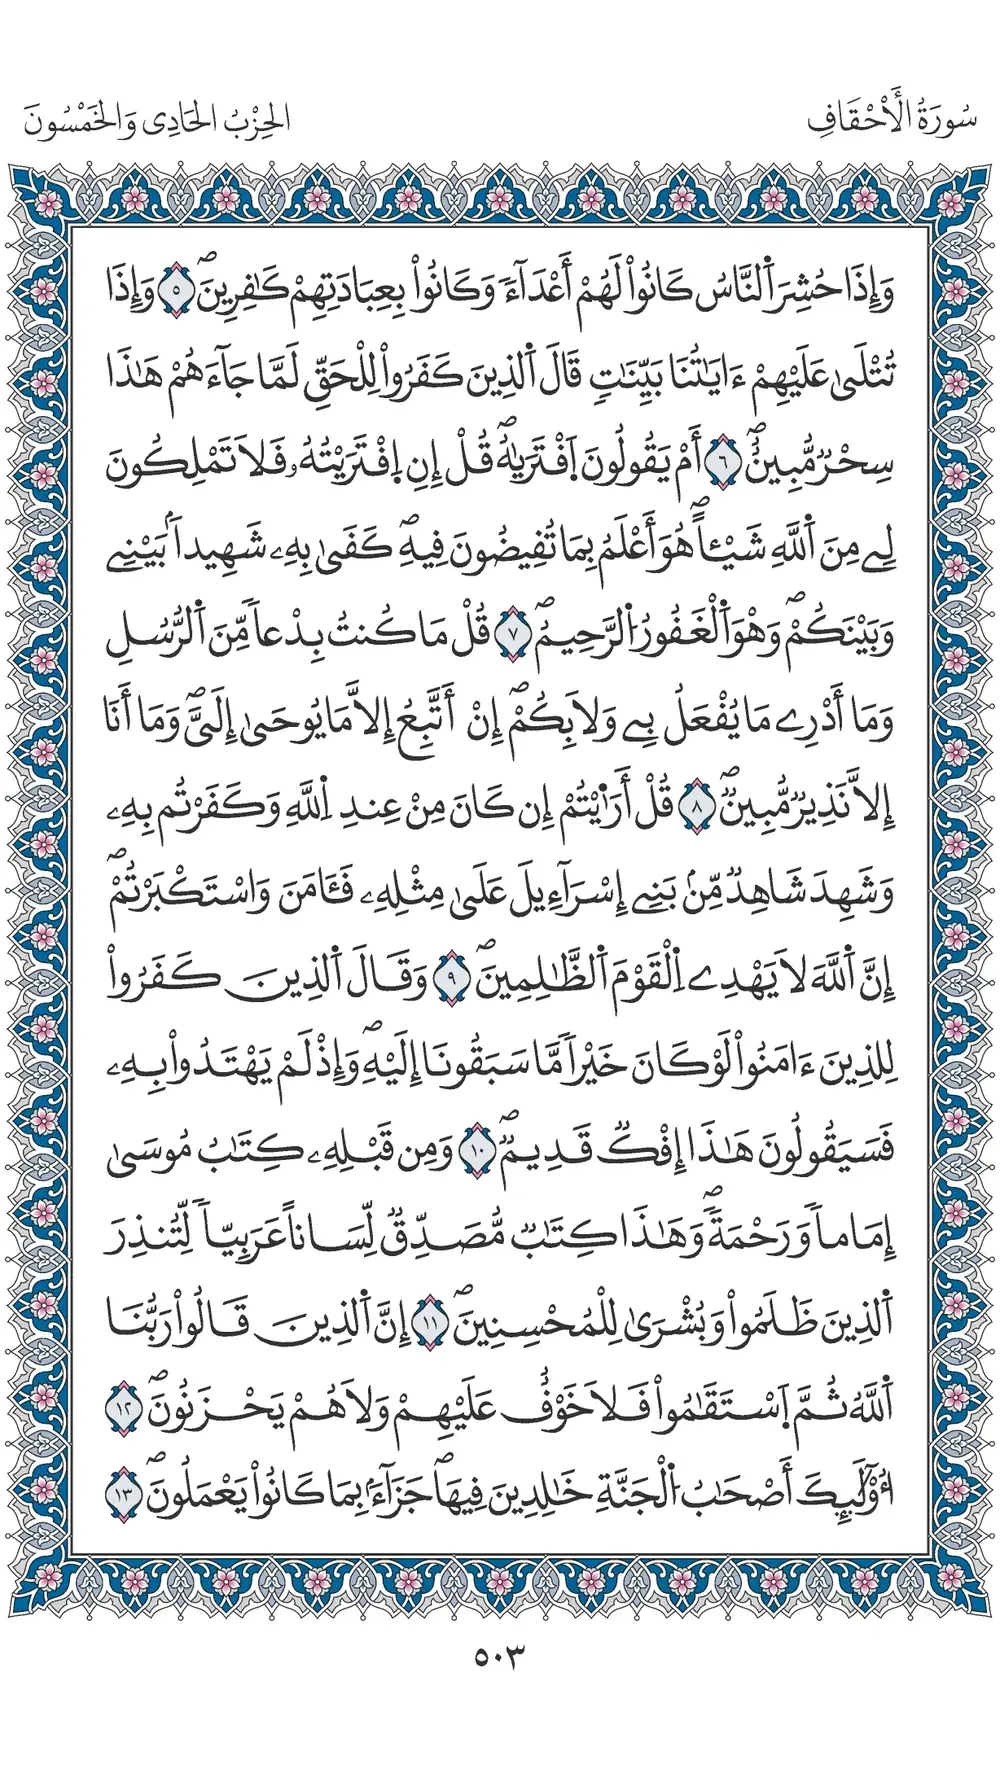 سُورَةُ الْأَحْقَافِ
الحِزْبُ الحَادِي وَالخَمْسُونَ
وَإِذَا حُشِرَ اَ۬لنَّاسُ كَانُواْ لَهُمْ أَعْدَآءٗ وَكَانُواْ بِعِبَادَتِهِمْ كَٰفِرِينَۖ ٥ وَإِذَا
تُتْلَىٰ عَلَيْهِمْ ءَايَٰتُنَا بَيِّنَٰتٖ قَالَ اَ۬لذِينَ كَفَرُواْ لِلْحَقِّ لَمَّا جَآءَهُمْ هَٰذَا
سِحْرٞ مُّبِينٌۖ ٦ أَمْ يَقُولُونَ اَ۪فْتَرَيٰهُۖ قُلْ إِنِ اِ۪فْتَرَيْتُهُۥ فَلَا تَمْلِكُونَ
لِے مِنَ اَ۬للَّهِ شَيْـٔاًۖ هُوَ أَعْلَمُ بِمَا تُفِيضُونَ فِيهِۖ كَفَىٰ بِهِۦ شَهِيداَۢ بَيْنِے
وَبَيْنَكُمْۖ وَهْوَ اَ۬لْغَفُورُ اُ۬لرَّحِيمُۖ ٧ قُلْ مَا كُنتُ بِدْعاٗ مِّنَ اَ۬لرُّسُلِ
وَمَا أَدْرِے مَا يُفْعَلُ بِے وَلَا بِكُمْۖ إِنْ أَتَّبِعُ إِلَّا مَا يُوحَىٰ إِلَيَّۖ وَمَا أَنَا
إِلَّا نَذِيرٞ مُّبِينٞۖ ٨ قُلْ أَرَٰيْتُمْ إِن كَانَ مِنْ عِندِ اِ۬للَّهِ وَكَفَرْتُم بِهِۦ
وَشَهِدَ شَاهِدٞ مِّنۢ بَنِے إِسْرَآءِيلَ عَلَىٰ مِثْلِهِۦ فَـَٔامَنَ وَاسْتَكْبَرْتُمْۖ
إِنَّ اَ۬للَّهَ لَا يَهْدِے اِ۬لْقَوْمَ اَ۬لظَّٰلِمِينَۖ ٩ وَقَالَ اَ۬لذِينَ كَفَرُواْ
لِلذِينَ ءَامَنُواْ لَوْ كَانَ خَيْراٗ مَّا سَبَقُونَا إِلَيْهِۖ وَإِذْ لَمْ يَهْتَدُواْ بِهِۦ
فَسَيَقُولُونَ هَٰذَا إِفْكٞ قَدِيمٞۖ ١٠ وَمِن قَبْلِهِۦ كِتَٰبُ مُوسَىٰ
إِمَاماٗ وَرَحْمَةٗۖ وَهَٰذَا كِتَٰبٞ مُّصَدِّقٞ لِّسَاناً عَرَبِيّاٗ لِّتُنذِرَ
اَ۬لذِينَ ظَلَمُواْ وَبُشْرَىٰ لِلْمُحْسِنِينَۖ ١١ إِنَّ اَ۬لذِينَ قَالُواْ رَبُّنَا
اَ۬للَّهُ ثُمَّ اَ۪سْتَقَٰمُواْ فَلَا خَوْفٌ عَلَيْهِمْ وَلَا هُمْ يَحْزَنُونَۖ ١٢
أُوْلَٰٓئِكَ أَصْحَٰبُ اُ۬لْجَنَّةِ خَٰلِدِينَ فِيهَاۖ جَزَآءَۢ بِمَا كَانُواْ يَعْمَلُونَۖ ١٣
٥٠٣